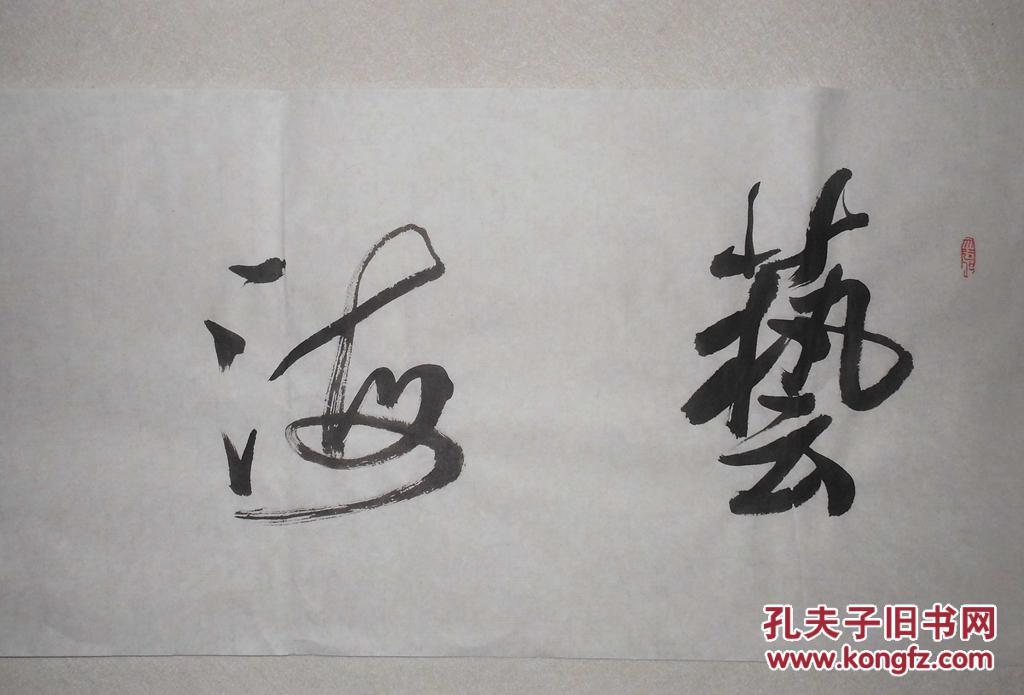 藝海
孔夫子旧书网
www.kongfz.com